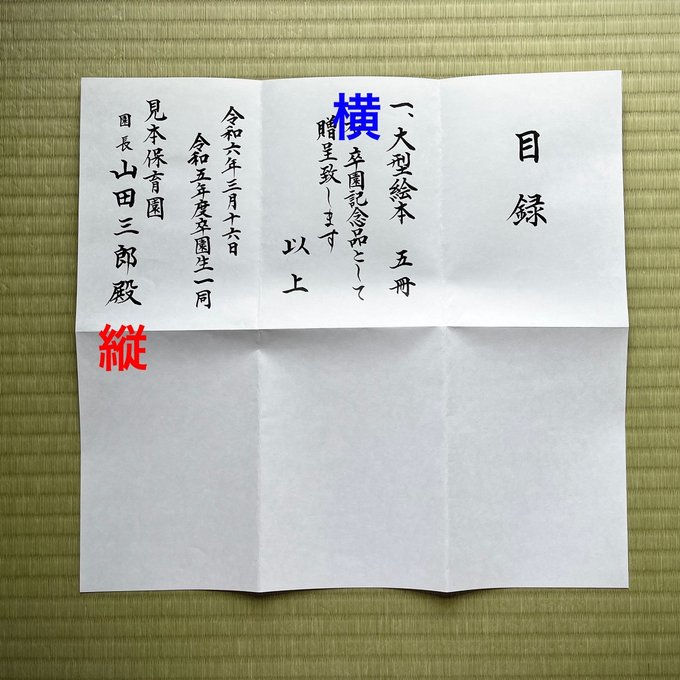 目録
一、大型絵本 五冊
卒園記念品として
贈呈致します
以上
令和六年三月十六日
令和五年度卒園生一同
見本保育園
園長 山田三郎殿
横
縦